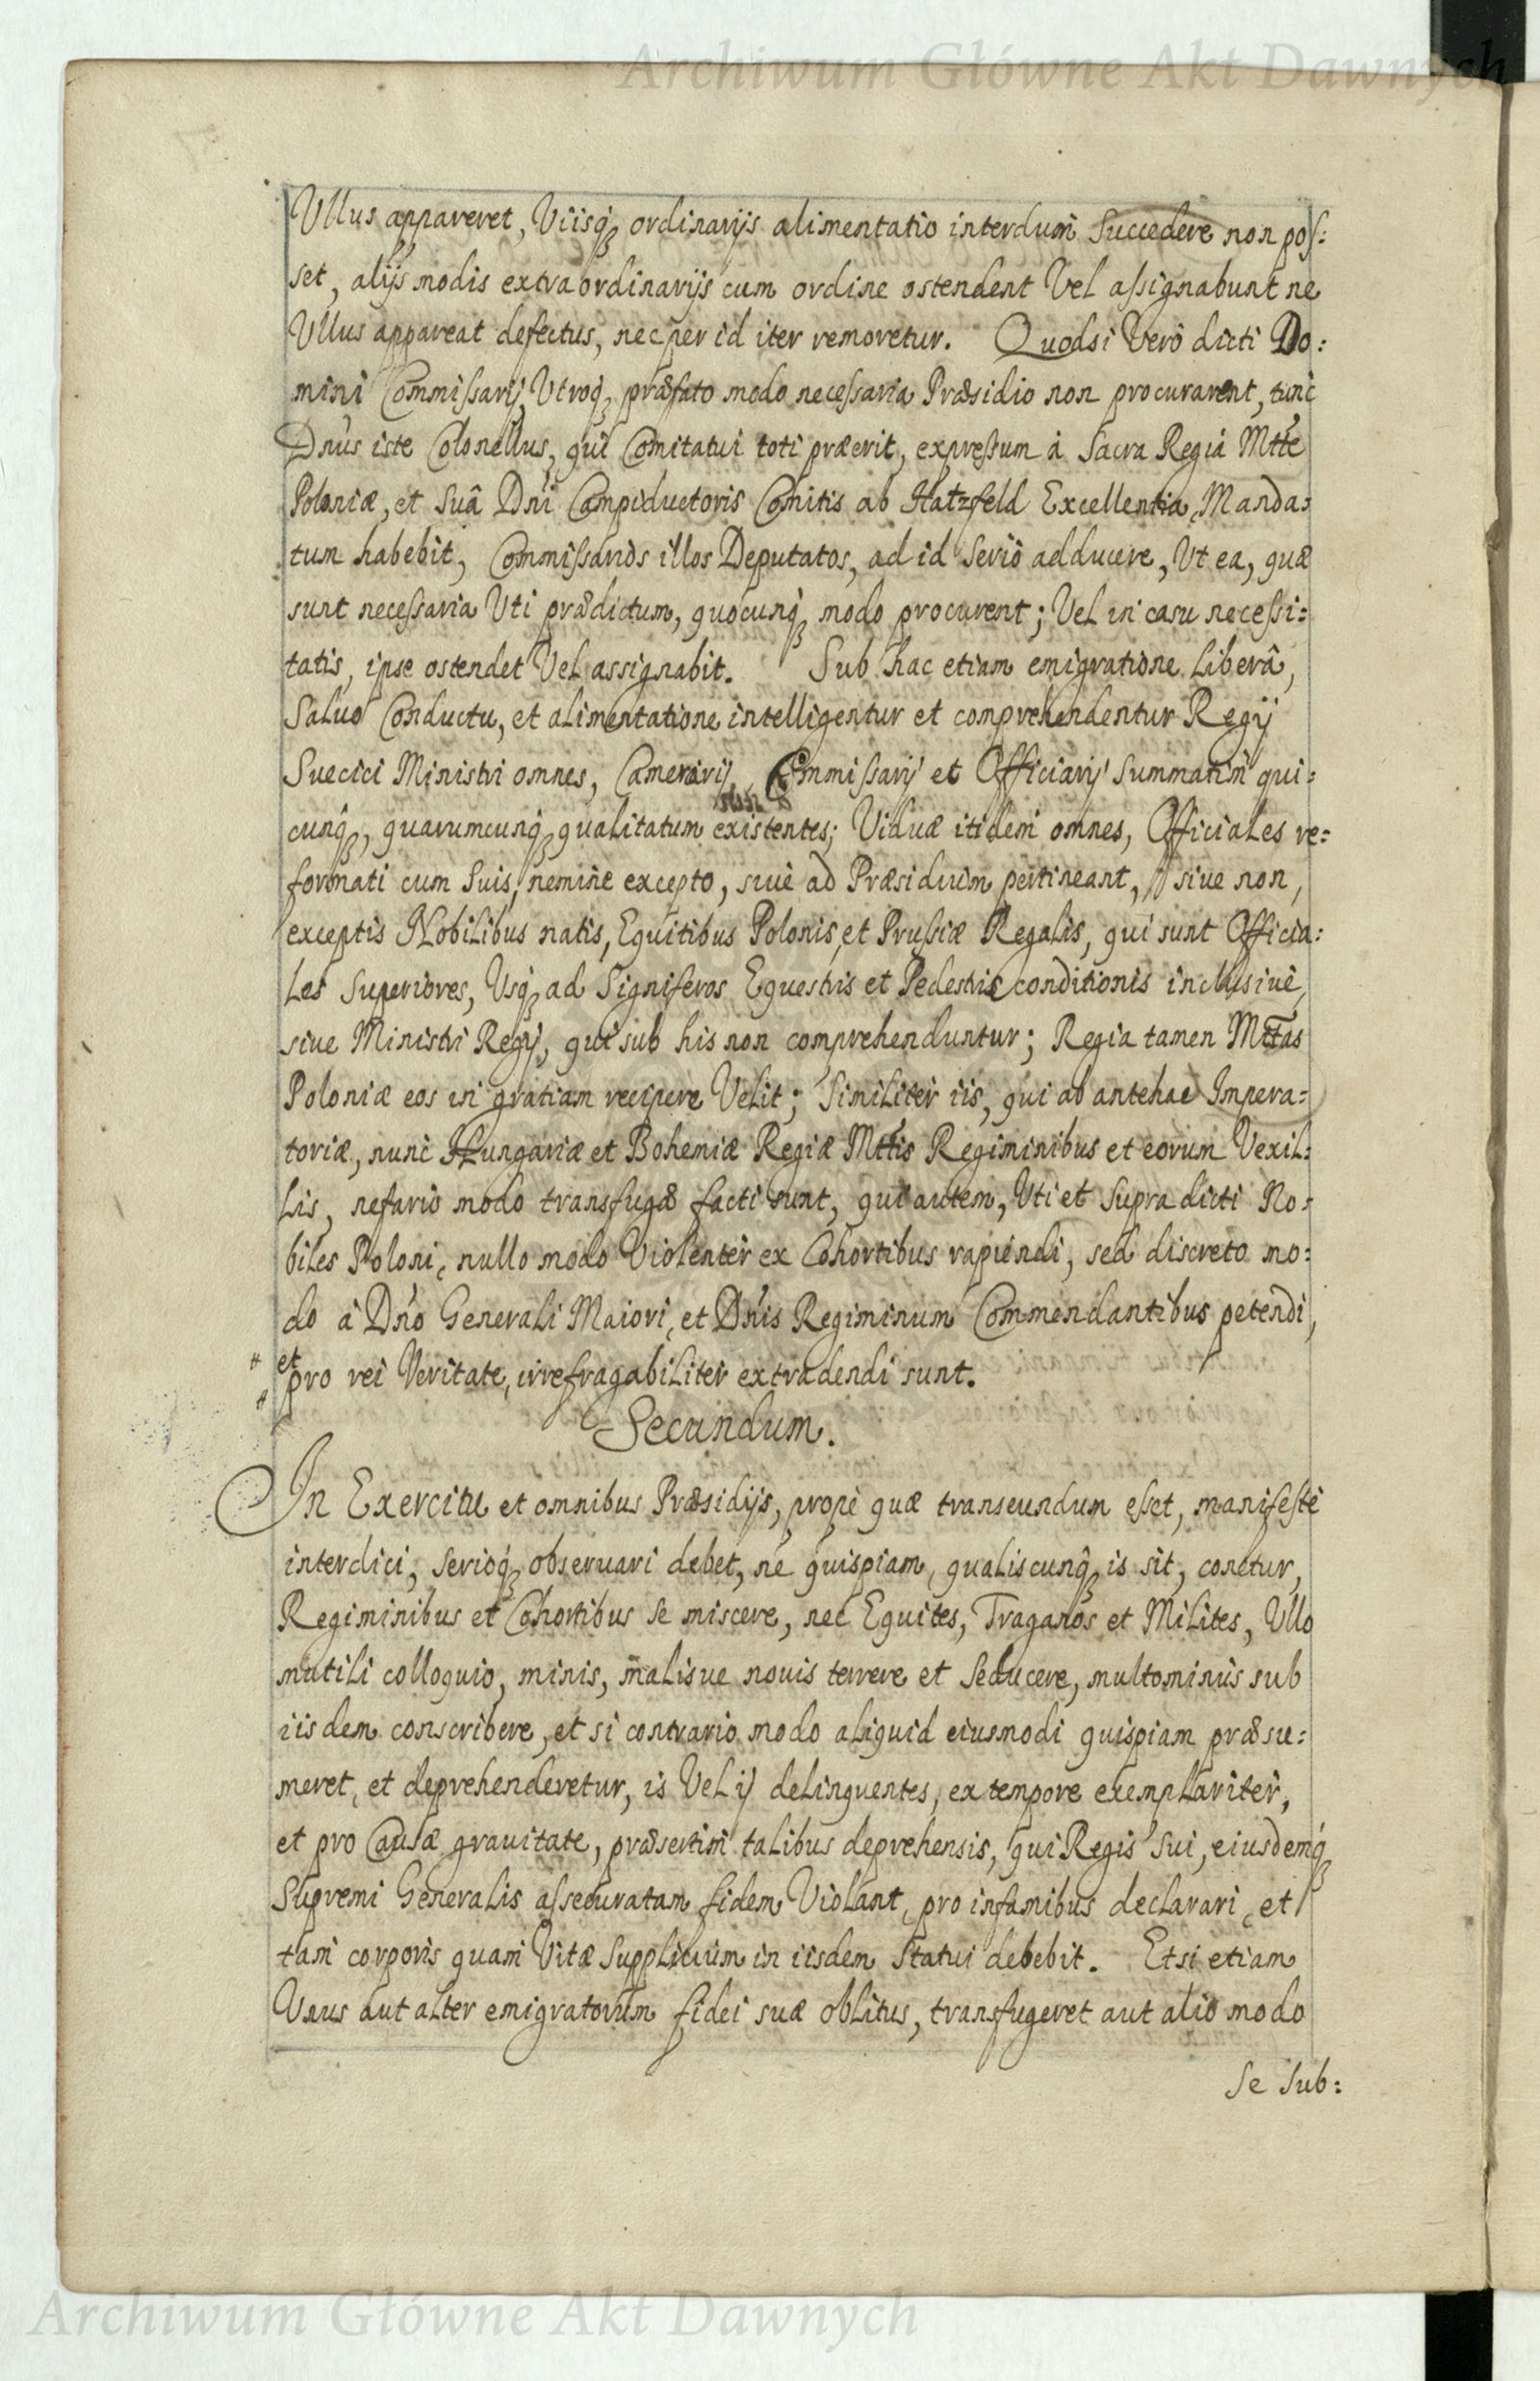 Archiwum Główne Akt Dawnych
Ullus appareret, Viisq́ꝫ ordinarijs alimentatio interdum Succedere non pos:
set, alijs modis extraordinarijs cum ordine ostendent Vel assignabunt ne
Ullus appareat defectus, nec per id iter remoretur. Quodsi Verò dicti Do:
mini Commissarij, Utroq́ꝫ præfato modo necessaria Præsidio non procurarent, tunc
Dnus iste Colonellus, qui Comitatui toti præerit, expressum à Sacra Regiá Mtte
Poloniæ, et Suâ Dni Campiductoris Comitis ab Hatzfeld Excellentia, Manda:
tum habebit, Commissarios illos Deputatos, ad id Seriò adducere, Ut ea, quæ
sunt necessaria Uti prædictum, quocunq́ꝫ modo procurent; Vel in casu necessi:
tatis, ipse ostendet Vel assignabit. Sub hac etiam emigratione Liberâ,
Saluo Conductu, et alimentatione intelligentur et comprehendentur Regij
Suecici Ministri omnes, Camerarij, Commissarij et Officiarij Summatim qui:
cunq́ꝫ, quarumcunq́ꝫ qualitatum existentes; Viduæ itidem omnes, Officiales re:
formati cum Suis, nemine excepto, siue ad Præsidium pertineant, siue non,
exceptis Nobilibus natis, Equitibus Polonis, et Prussiæ Regalis, qui sunt Officia:
les Superiores, Usq́ꝫ ad Signiferos Equestris et Pedestris conditionis inclusiuè,
siue Ministri Regij, qui sub his non comprehenduntur; Regia tamen Mttas
Poloniæ eos in gratiam recipere Velit; Similiter iis, qui ab antehac Impera:
toriæ, nunc Hungariæ et Bohemiæ Regiæ Mttis Regiminibus et eorum Vexil:
lis, nefario modo transfugæ facti sunt, qui autem, Uti et Supra dicti No:
biles Poloni, nullo modo Violenter ex Cohortibus rapiendi, sed discreto mo:
do à Dno Generali Maiori, et Dnis Regiminum Commendantibus petendi,
et
pro rei Veritate, irrefragabiliter extradendi sunt.
Secundum.
In Exercitu et omnibus Præsidijs, propè quæ transeundum esset, manifestè
interdici, Serioq́ꝫ obseruari debet, ne quispiam, qualiscunq́ꝫ is sit, conetur,
Regiminibus et Cohortibus se miscere, nec Equites, Traganos et Milites, Ullo
inutili colloquio, minis, malisue nouis terrere et Seducere, multominus sub
iisdem conscribere, et si contrario modo aliquid eiusmodi quispiam præsu:
meret, et deprehenderetur, is Vel ij delinquentes, ex tempore exemplariter,
et pro Causæ grauitate, præsertim talibus deprehensis, qui Regis Sui, eiusdemq́ꝫ
Supremi Generalis assecuratam fidem Violant, pro infamibus declarari, et
tam corporis quam Vitæ Supplicium in iisdem Statui debebit. Etsi etiam
Unus aut alter emigratorum fidei suæ oblitus, transfugeret aut alio modo
Se Sub:
Archiwum Główne Akt Dawnych